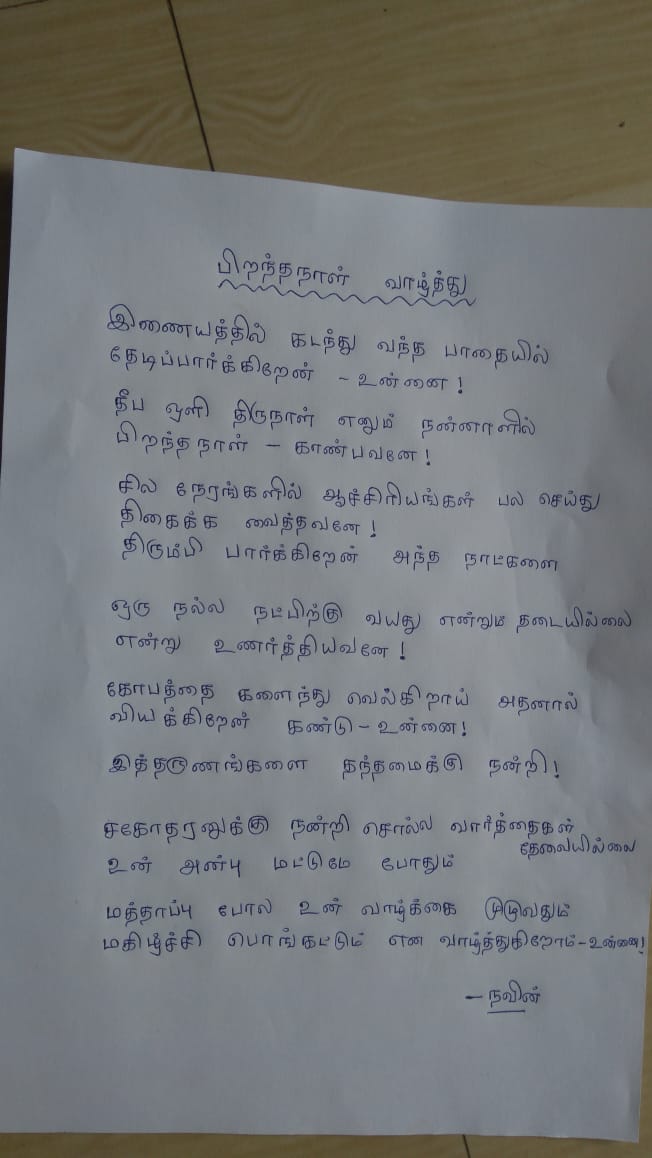 பிறந்தநாள் வாழ்த்து
இணையத்தில் கடந்து வந்த பாதையில்
தேடிப்பார்க்கிறேன் - உன்னை!
தீப ஒளி திருநாள் எனும் நன்னாளில்
பிறந்தநாள் - காண்பவனே!
சில நேரங்களில் ஆச்சிரியங்கள் பல செய்து
திகைக்க வைத்தவனே!
திரும்பி பார்க்கிறேன் அந்த நாட்களை
ஒரு நல்ல நட்பிற்கு வயது என்றும் தடையில்லை
என்று உணர்த்தியவனே!
கோபத்தை களைந்து வெல்கிறாய் அதனால்
வியக்கிறேன் கண்டு - உன்னை!
இத்தருணங்களை தந்தமைக்கு நன்றி!
சகோதரனுக்கு நன்றி சொல்ல வார்த்தைகள்
தேவையில்லை
உன் அன்பு மட்டுமே போதும்
மத்தாப்பு போல உன் வாழ்க்கை முழுவதும்
மகிழ்ச்சி பொங்கட்டும் என வாழ்த்துகிறோம் - உன்னை!
- நவின்